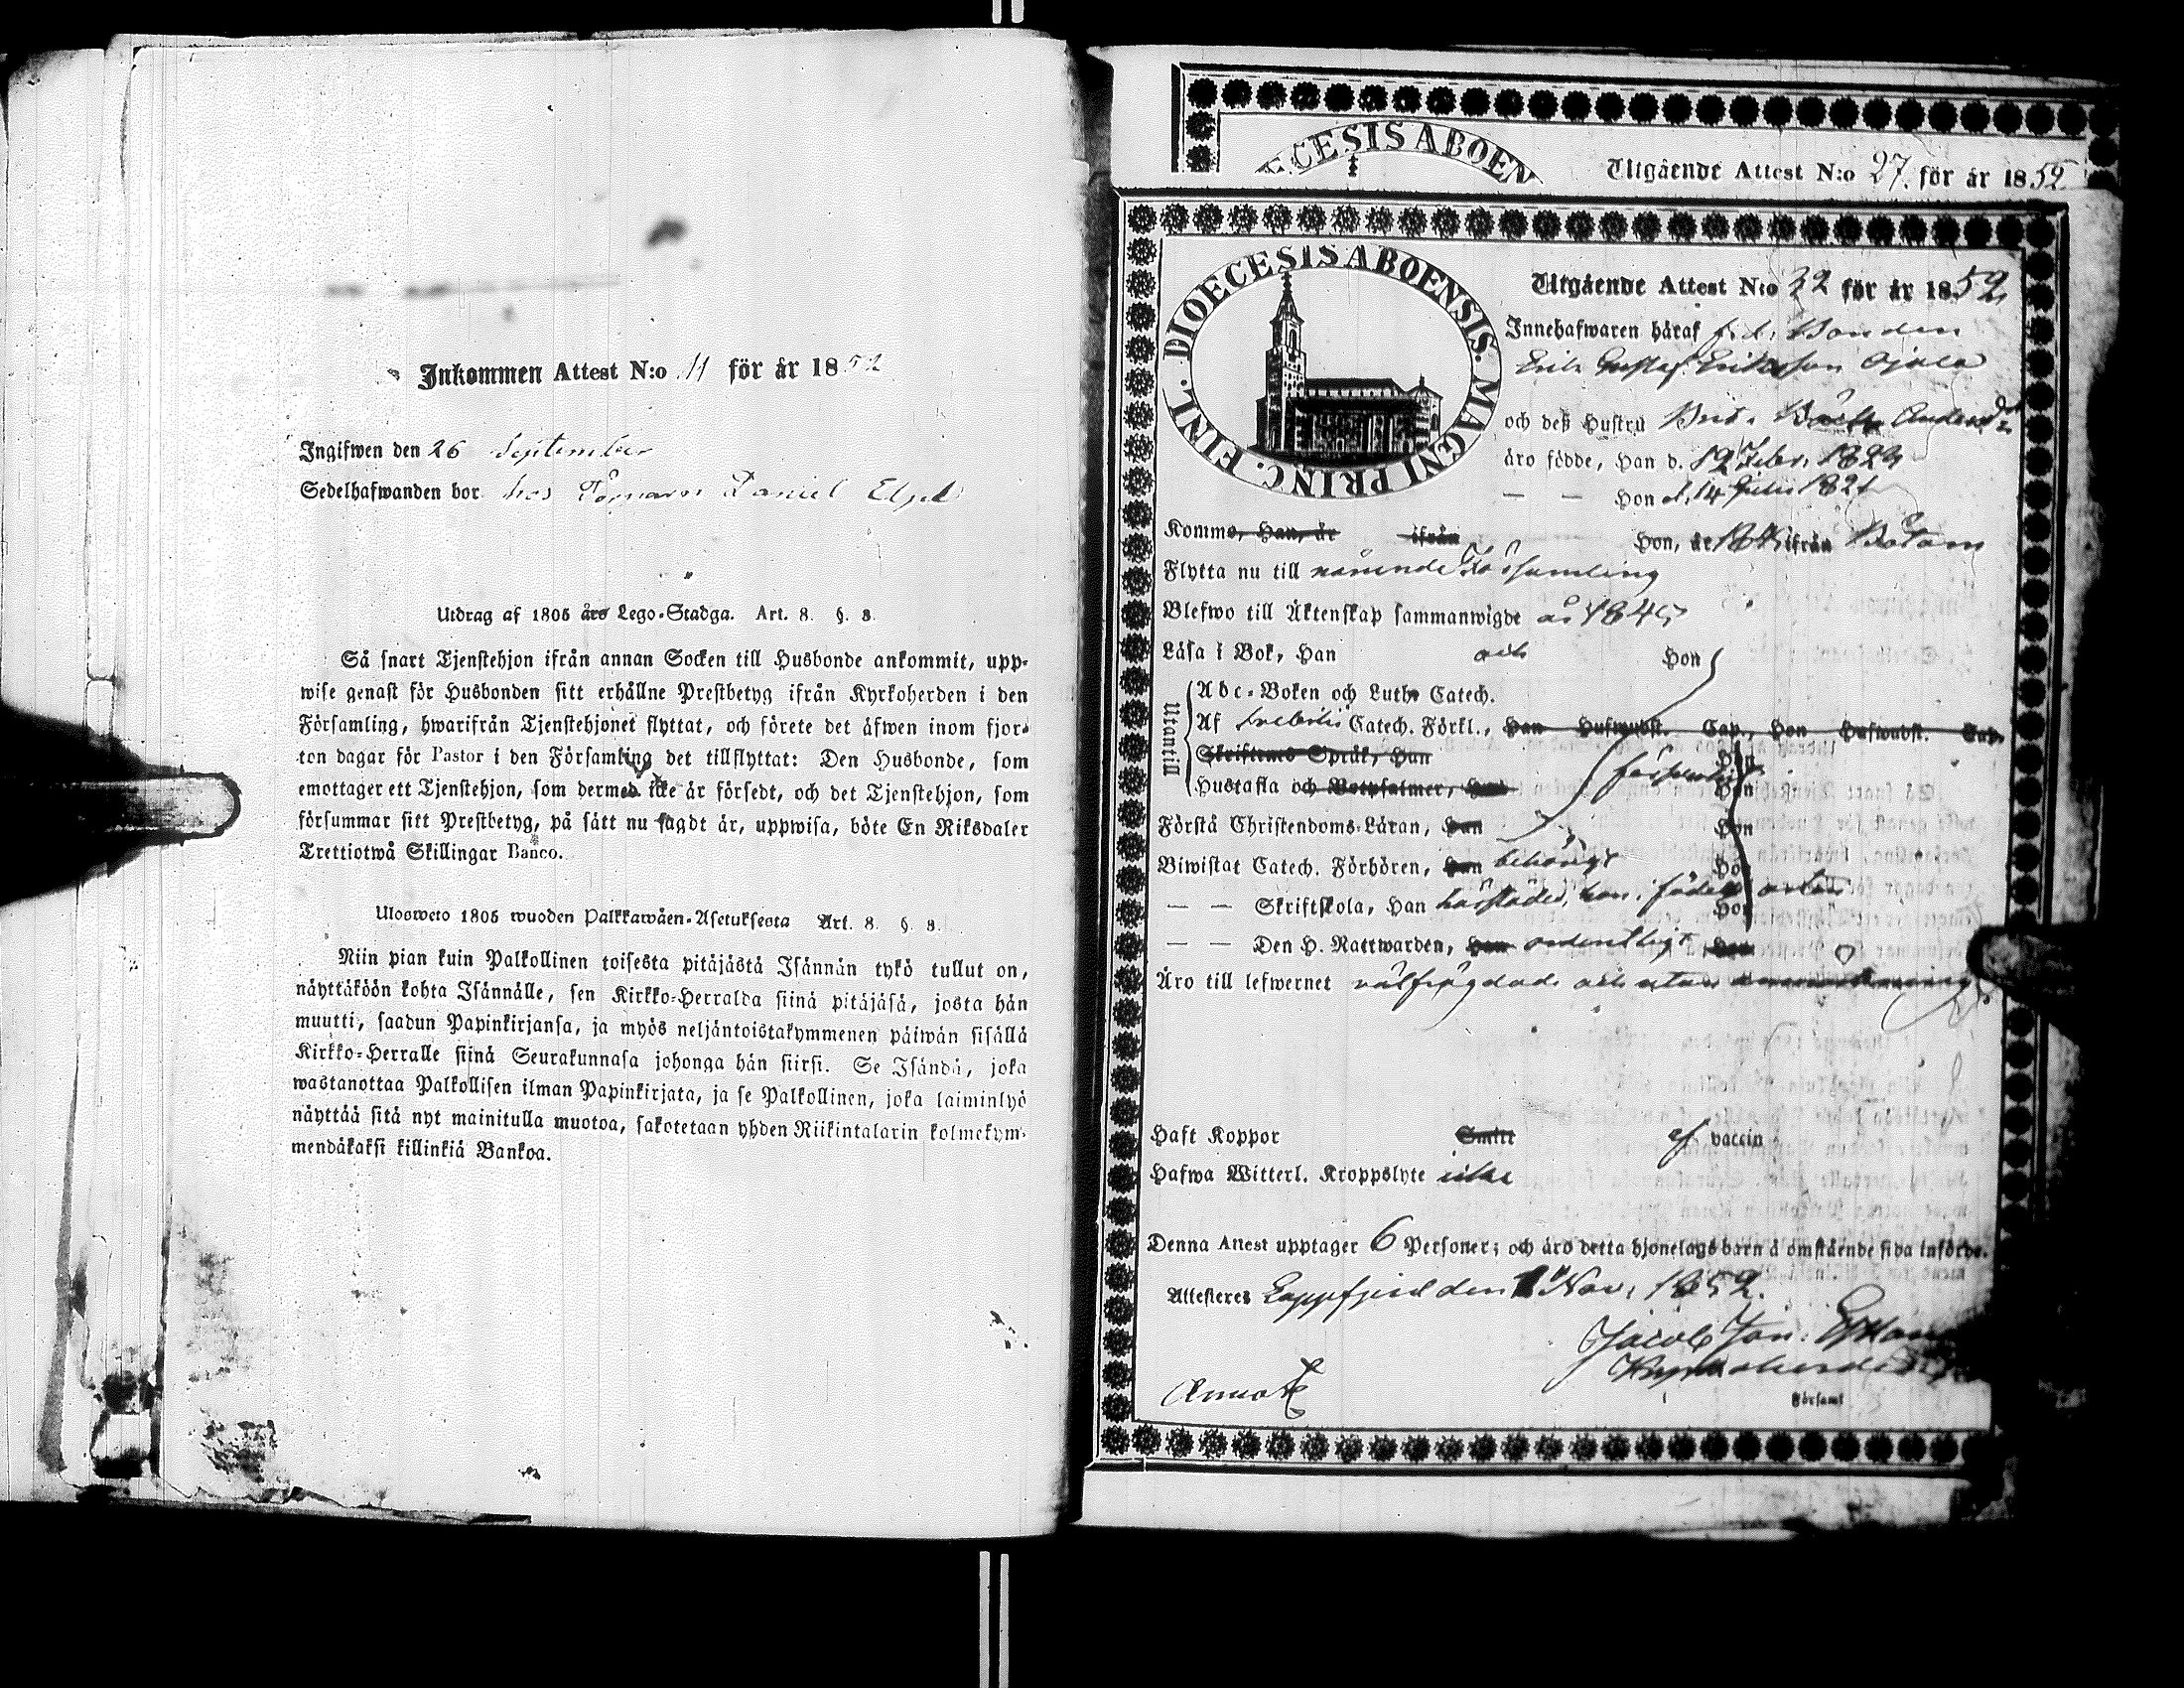 Inkommen Attest N:o 11 för år 1852
Ingifwen den 26 September
Sedelhafwanden bor hos Daniel
Utdrag af 1805 års Lego-Stadga. Art. 8. §. 3.
Så snart Tjenstehjon ifrån annan Socken till Husbonde ankommit, upp-
wise genast för Husbonden sitt erhållne Prestbetyg ifrån Kyrkoherden i den
Församling, hwarifrån Tjenstehjonet flyttat, och förete det äfwen inom fjor-
ton dagar för Pastor i den Församling det tillflyttat: Den Husbonde, som
emottager ett Tjenstehjon, som dermed icke är försedt, och det Tjenstehjon, som
försummar sitt Prestbetyg, på sätt nu sagdt är, uppwisa, böte En Riksdaler
Trettiotwå Skillingar Banco.
Ulosweto 1805 wuoden Palkkawäen-Asetuksesta Art. 8. §. 3.
Niin pian kuin Palkollinen toisesta pitäjästä Isännän tykö tullut on,
näyttäköön kohta Isännälle, sen Kirkko-Herralda siinä pitäjäsä, josta hän
muutti, saadun Papinkirjansa, ja myös neljäntoistakymmenen päiwän sisällä
Kirkko-Herralle siinä Seurakunnasa johonga hän siirsi. Se Isändä, joka
wastanottaa Palkollisen ilman Papinkirjata, ja se Palkollinen, joka laiminlyö
näyttää sitä nyt mainitulla muotoa, sakotetaan yhden Riikintalarin kolmekym-
mendäkaksi killinkiä Bankoa.
ECESIS ABOEN
Utgående Attest N:o 27. för år 1852
DIOECESIS ABOENSIS. MAGNI PRINC. FINL.
Utgående Attest N:o 32 för år 1852,
Innehafwaren häraf f.d. Bonden
Erik Gustaf Eriksson Ojala
och deß Hustru Brit. Anders
äro födde, Han d. 12 Febr. 1823
— — Hon d. 14 Julii 1821
Komme, Han, år ifrån Hon, år ifrån Bötom
Flytta nu till Församling
Blefwo till Äktenskap sammanwigde år 1845
Läsa i Bok, Han och Hon
Utantill
Abc-Boken och Luth. Catech.
Af Svebilii Catech. Förkl., Han Hufwudst. Cap., Hon Hufwudst. Cap.
Skriftenes Språk, Han Hon
Hustafla och Botpsalmer, Han försvarligt Hon
Förstå Christendoms-Läran, Han Hon
Biwistat Catech. Förhören, Han behörigt Hon
— — Skriftskola, Han härstädes, hon i födelse orten Hon
— — Den H. Nattwarden, Han ordentligt Hon
Äro till lefwernet välfrägdade och utan
Haft Koppor Smitt af vaccin
Hafwa Witterl. Kroppslyte icke
Denna Attest upptager 6 Personer; och äro detta hjonelags barn å omstående sida införde.
Attesteres Lappfjerd den 1 Nov. 1852.
Jacob Jon.
Kyrkoherde
Församl